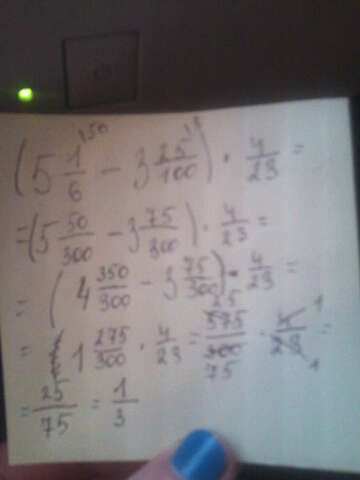 (5 1/6 - 3 25/100) · 4/23 =
= (5 50/300 - 3 75/300) · 4/23 =
= (4 350/300 - 3 75/300) · 4/23 =
= 1 275/300 · 4/23 = 575/300 · 4/23 =
= 25/75 = 1/3